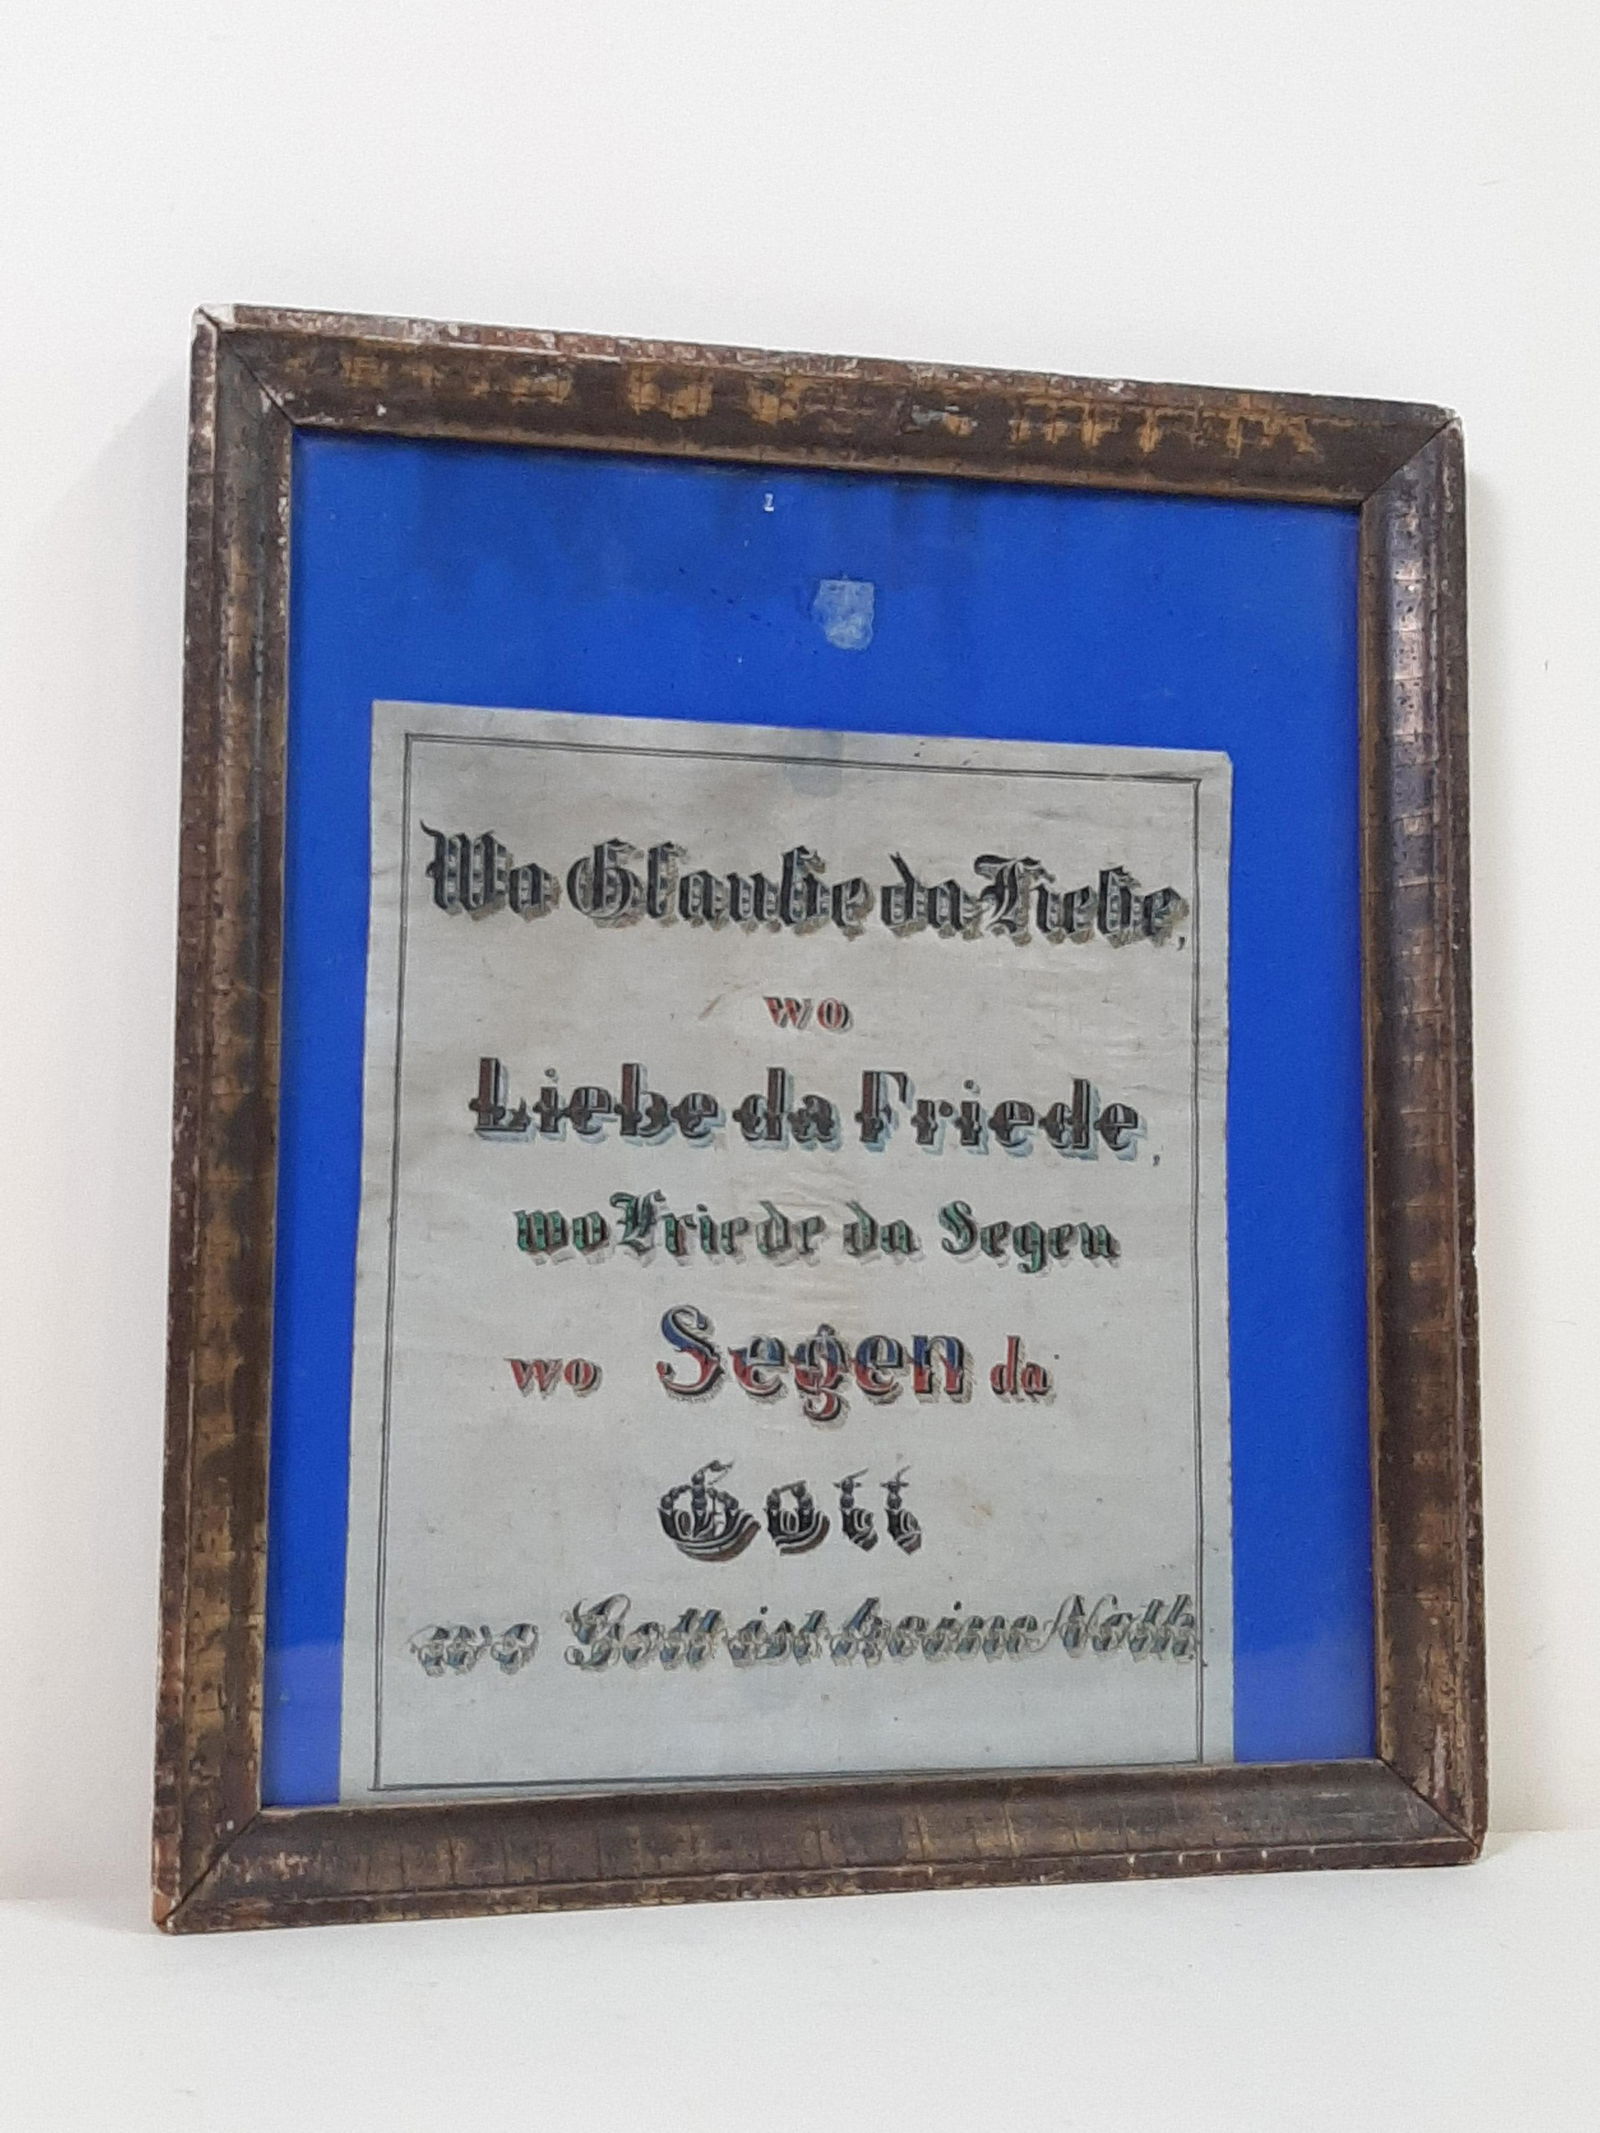 Wo Glaube da Liebe,
wo
Liebe da Friede,
wo Friede da Segen
wo Segen da
Gott
wo Gott ist keine Noth.